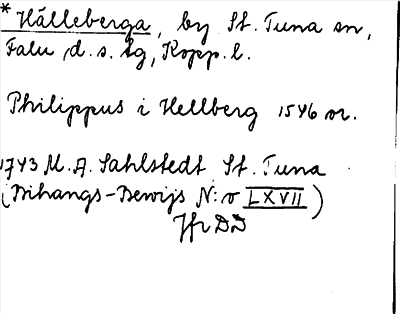 * Hälleberga, by St. Tuna sn,
Falu d.s. tg, Kopp. l.
Philippus i Hellberg 1546 or.
1743 M. A. Sahlstedt, St. Tuna
(Bihangs-Bewijs N:o LXVII)
Jfr DD